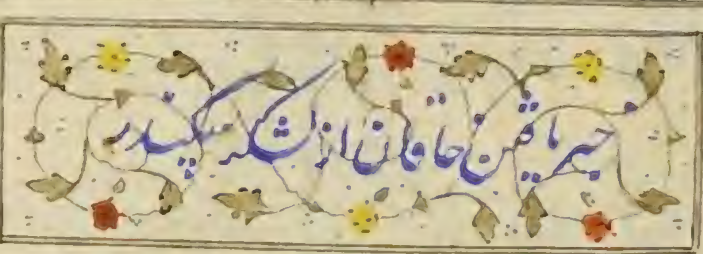 خبر یافتن خاقان از لشکر سکندر